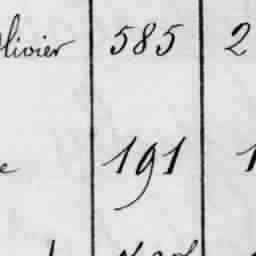 Olivier 585 2
e 191 1